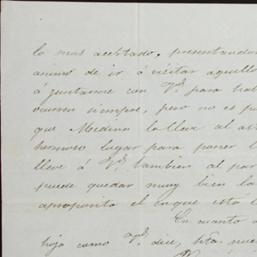 lo mas acertado, presentandon
animo de ir á visitar aquello
á juntarme con V.^d para tra
ocurren siempre, pero no es p
que Medina la lleve al as
hermoso lugar para poner l
lleve á V.^d tambien al par
puede quedar muy bien la
aproposito el en que esta l
En cuanto á
hoja como V.^d dice, pue